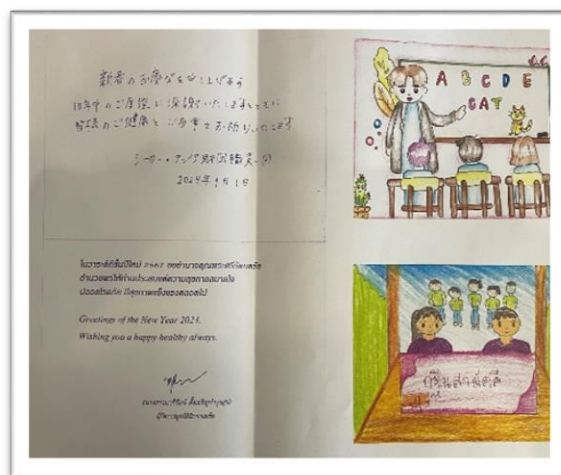 新春のお慶びを申し上げます
旧年中のご厚情に深謝いたしますとともに
皆様のご健康とご多幸をお祈りいたします
シーカー・アジア財団職員一同
2024年1月1日
ในวาระดิถีขึ้นปีใหม่ 2567 ขออำนาจคุณพระศรีรัตนตรัย
อำนวยพรให้ท่านประสบแต่ความสุขกายสบายใจ
ปลอดโรคภัย มีสุขภาพแข็งแรงตลอดไป
Greetings of the New Year 2024.
Wishing you a happy healthy always.
A B C D E
CAT